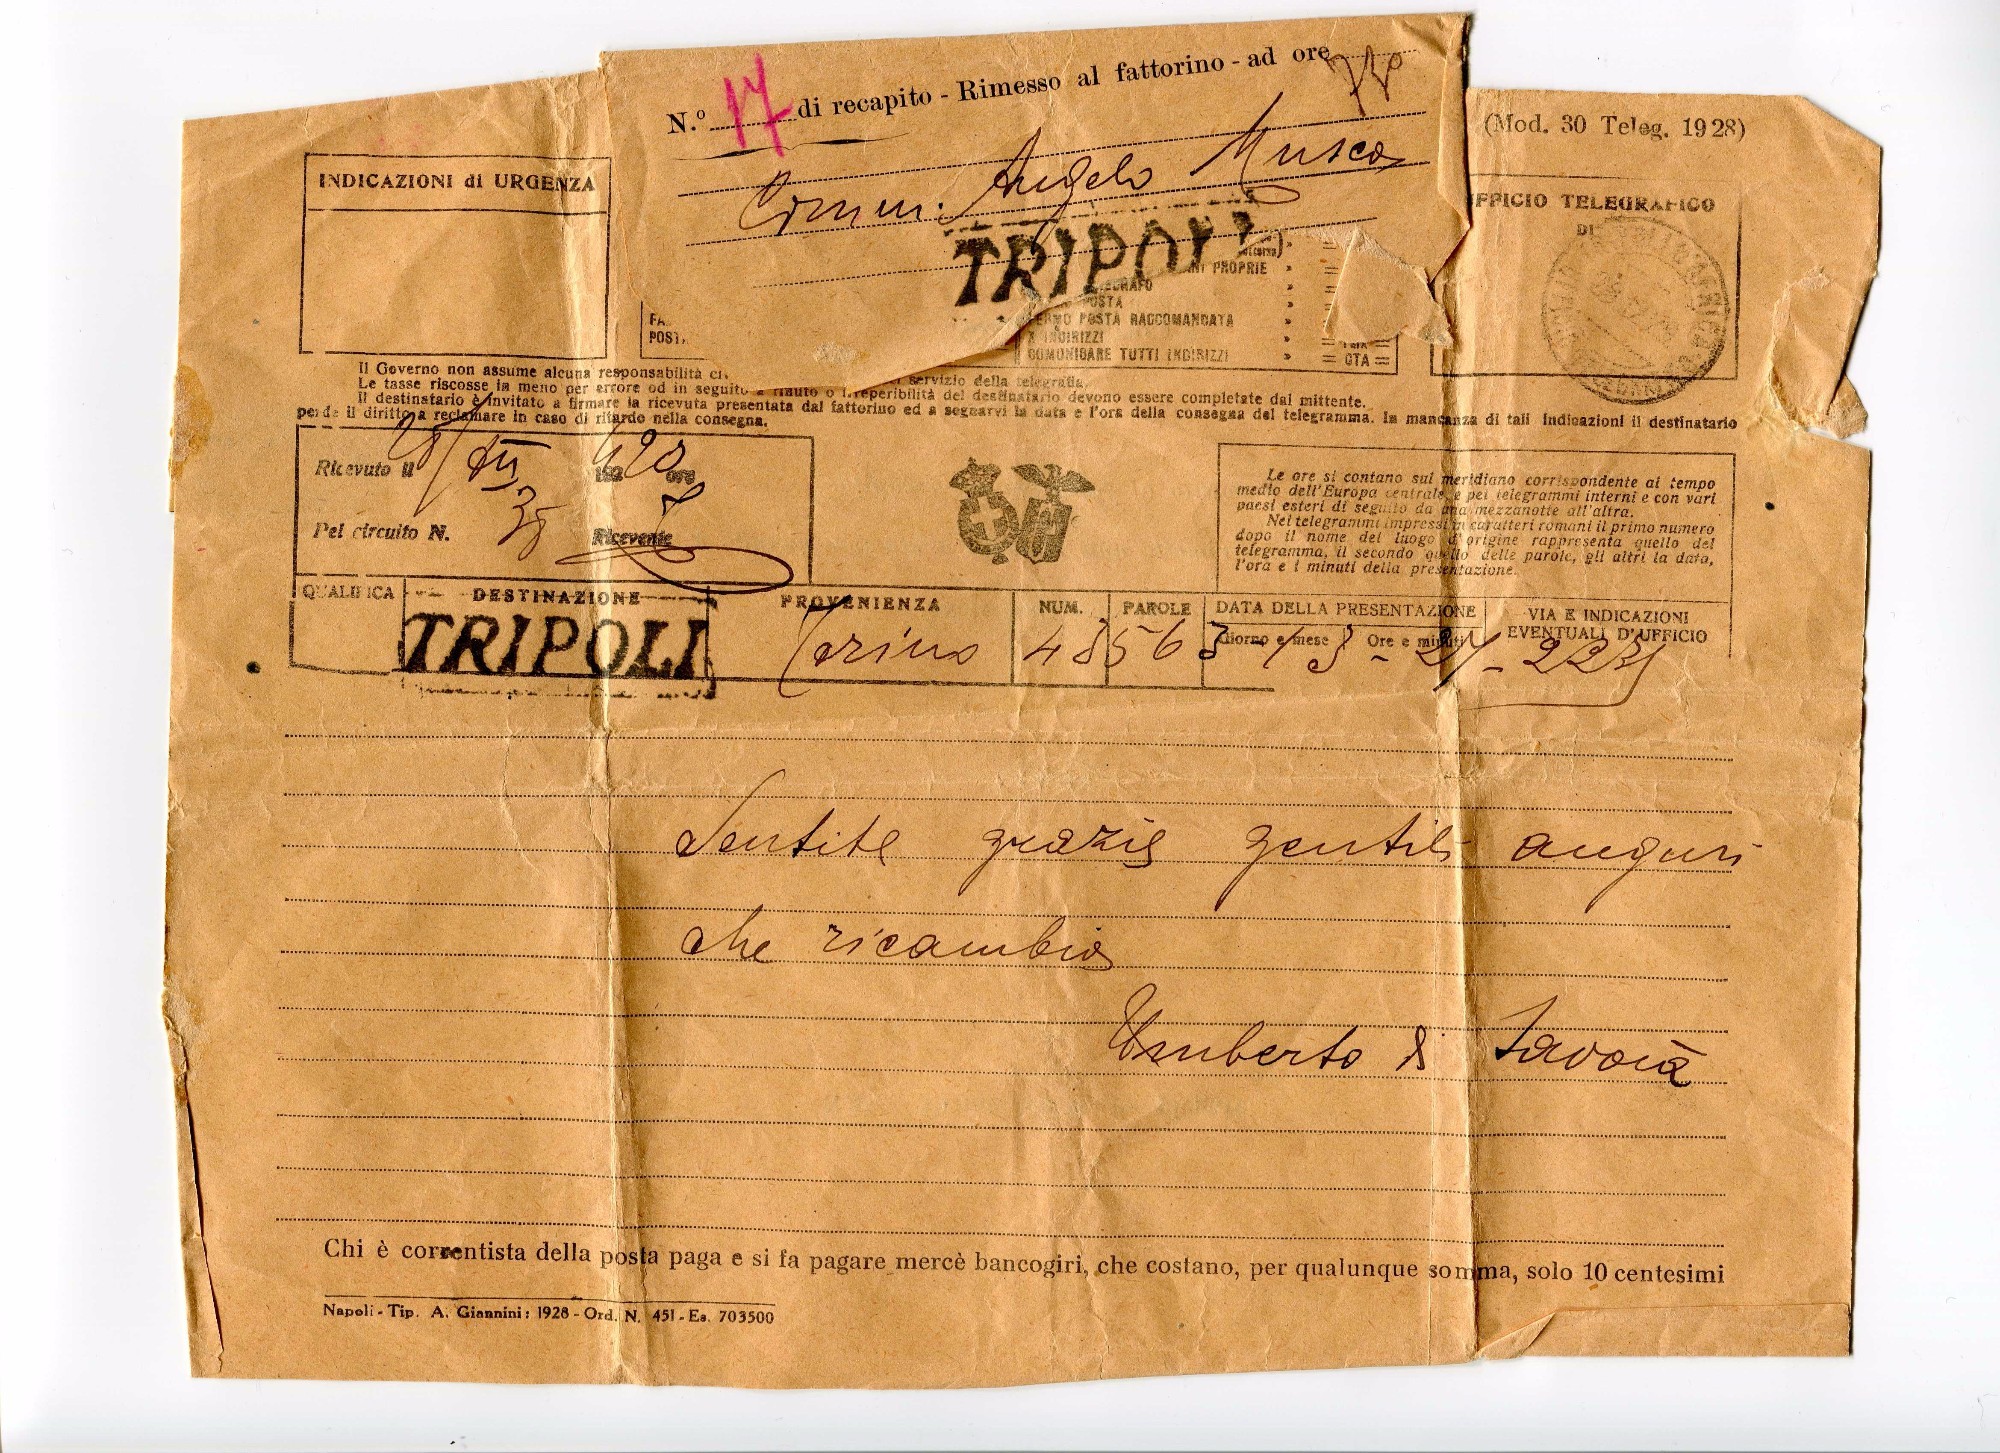 N.º 17 di recapito - Rimesso al fattorino - ad ore
(Mod. 30 Teleg. 1928)
Comm. Angelo Musco
TRIPOLI
INDICAZIONI di URGENZA
UFFICIO TELEGRAFICO
DI
PROPRIE
POSTA
POSTA RACCOMANDATA
INDIRIZZI
COMUNICARE TUTTI INDIRIZZI = CTA =
Il Governo non assume alcuna responsabilità servizio della telegrafia.
Le tasse riscosse in meno per errore od in seguito a rifiuto o irreperibilità del destinatario devono essere completate dal mittente.
Il destinatario è invitato a firmare la ricevuta presentata dal fattorino ed a segnarvi la data e l'ora della consegna del telegramma. In mancanza di tali indicazioni il destinatario
perde il diritto a reclamare in caso di ritardo nella consegna.
Ricevuto il 28/XII 192 ore
Pel circuito N. Ricevente
Le ore si contano sul meridiano corrispondente al tempo
medio dell'Europa centrale, e pei telegrammi interni e con vari
paesi esteri di seguito da una mezzanotte all'altra.
Nei telegrammi impressi in caratteri romani il primo numero
dopo il nome del luogo d'origine rappresenta quello del
telegramma, il secondo quello delle parole, gli altri la data,
l'ora e i minuti della presentazione.
QUALIFICA DESTINAZIONE PROVENIENZA NUM. PAROLE DATA DELLA PRESENTAZIONE VIA E INDICAZIONI
Giorno e mese Ore e minuti EVENTUALI D'UFFICIO
TRIPOLI Torino
Sentite grazie gentili auguri
che ricambio
Umberto di Savoia
Chi è correntista della posta paga e si fa pagare mercè bancogiri, che costano, per qualunque somma, solo 10 centesimi
Napoli - Tip. A. Giannini: 1928 - Ord. N. 451 - Es. 703500